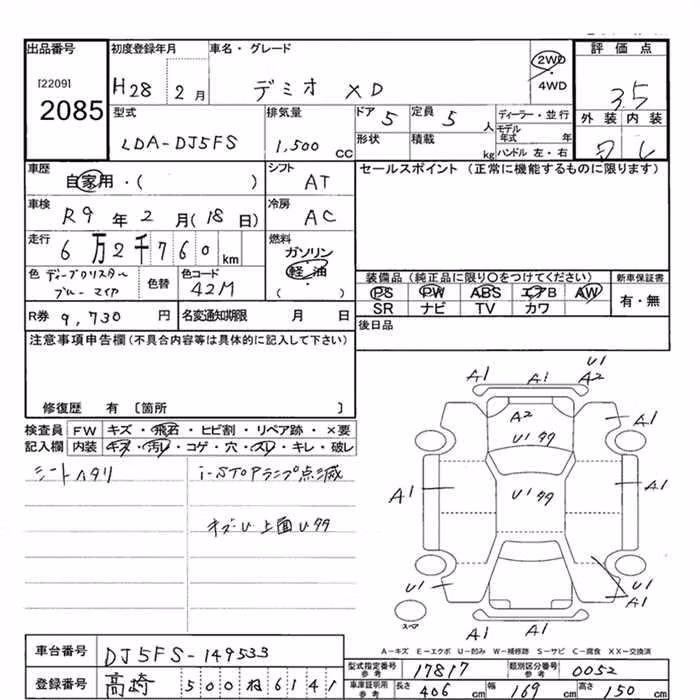 出品番号 初度登録年月 車名・グレード 評価点
[2209]
2085
H28 2月 デミオ XD 2WD・4WD 3.5
型式 排気量 ドア 定員 ディーラー・並行 外装 内装
LDA-DJ5FS 1,500cc 5 5人 モデル年式 年
形状 積載 kg ハンドル 左・右
車歴 シフト セールスポイント (正常に機能するものに限ります)
自家用・( ) AT
車検 冷房
R9年2月(18日) AC
走行 燃料
6万2千760km ガソリン・軽油( )
色 ディープクリスタルブルーマイカ 色替 色コード 42M
装備品 (純正品に限り○をつけてください) 新車保証書
PS PW ABS エアB AW 有・無
SR ナビ TV カワ
R券 9,730円 名変通知期限 月 日 後日品
注意事項申告欄(不具合内容等は具体的に記入して下さい)
修復歴 有 〔箇所 〕
検査員記入欄 FW キズ・飛石・ヒビ割・リペア跡・×要
内装 キズ・汚レ・コゲ・穴・スレ・キレ・破レ
シートヘタリ i-STOPランプ点滅
上面Uタタ
U1
A1 A1 A2
A2 A1
U1タタ
A1 U1タタ A1
U1 U1
A1
A1 A1
スペア
A-キズ E-エクボ U-凹み W-補修跡 S-サビ C-腐食 XX-交換済
車台番号 DJ5FS-149533
型式指定番号 参考 17817 類別区分番号 参考 0052
登録番号 高崎 500ね6141
車庫証明用 参考 長さ 406cm 幅 169cm 高さ 150cm